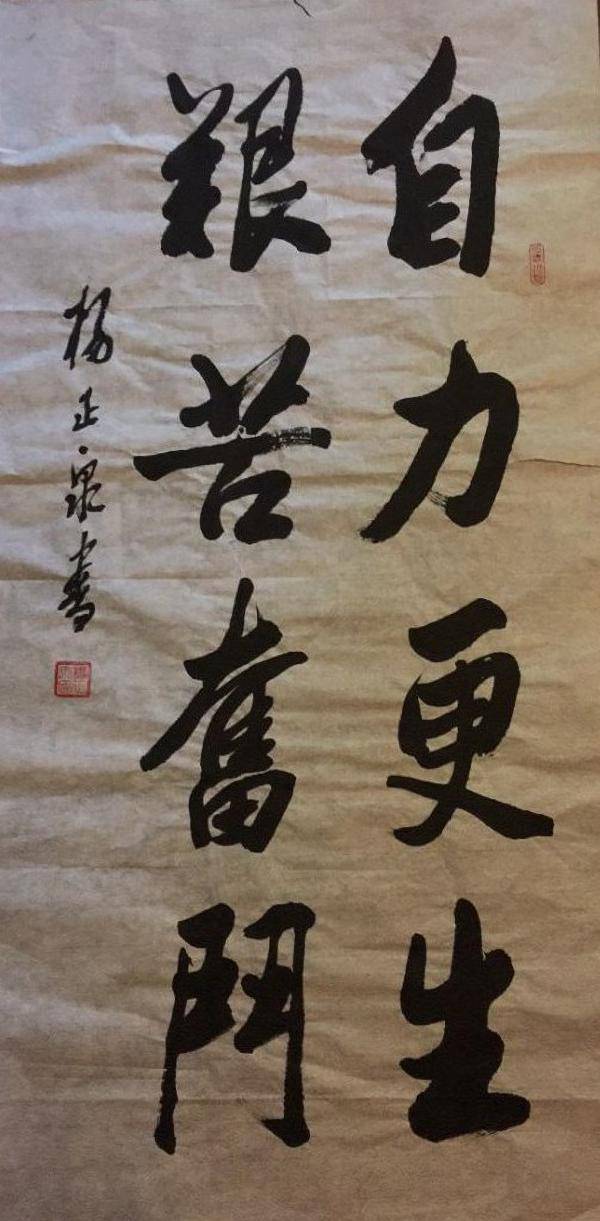 自力更生
艱苦奮鬥
楊正泉書